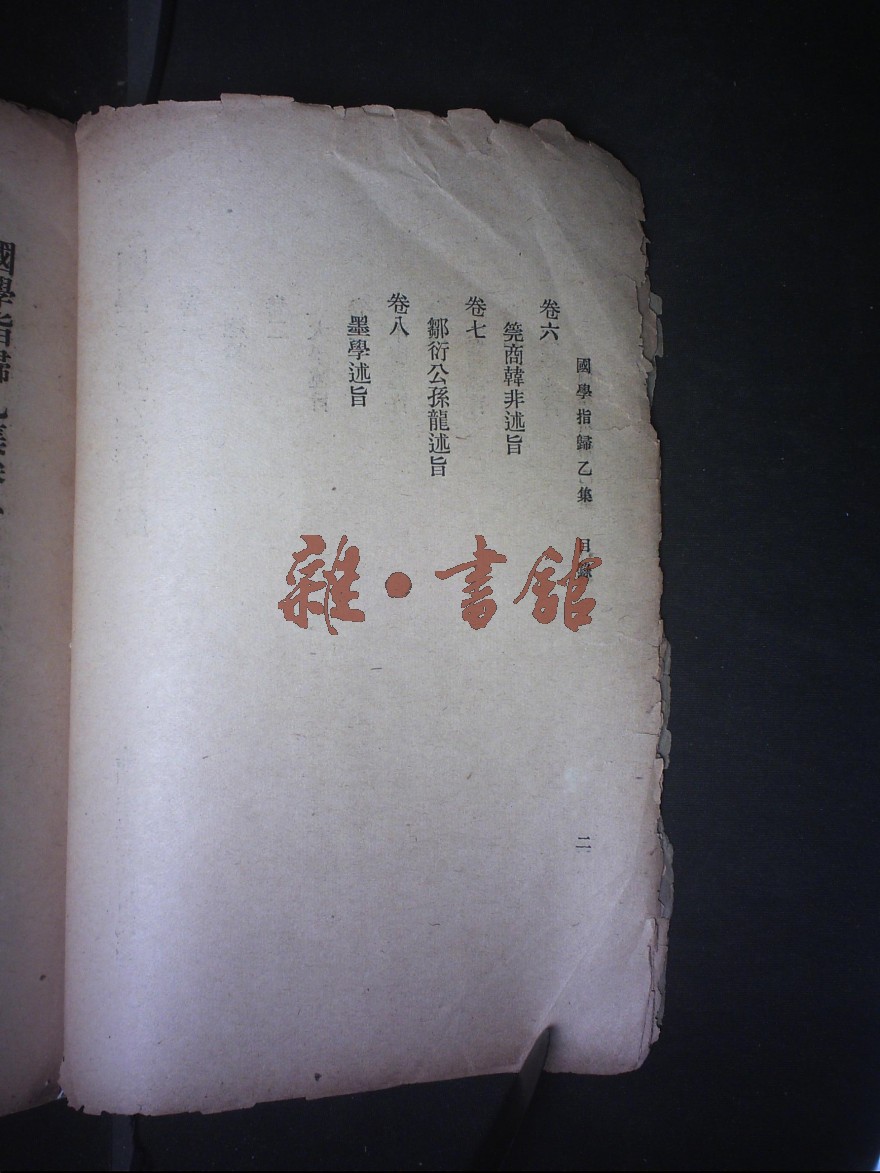 國學指歸乙集 目錄
二
卷六
筦商韓非述旨
卷七
鄒衍公孫龍述旨
卷八
墨學述旨
雜·書館
國學指歸乙集卷